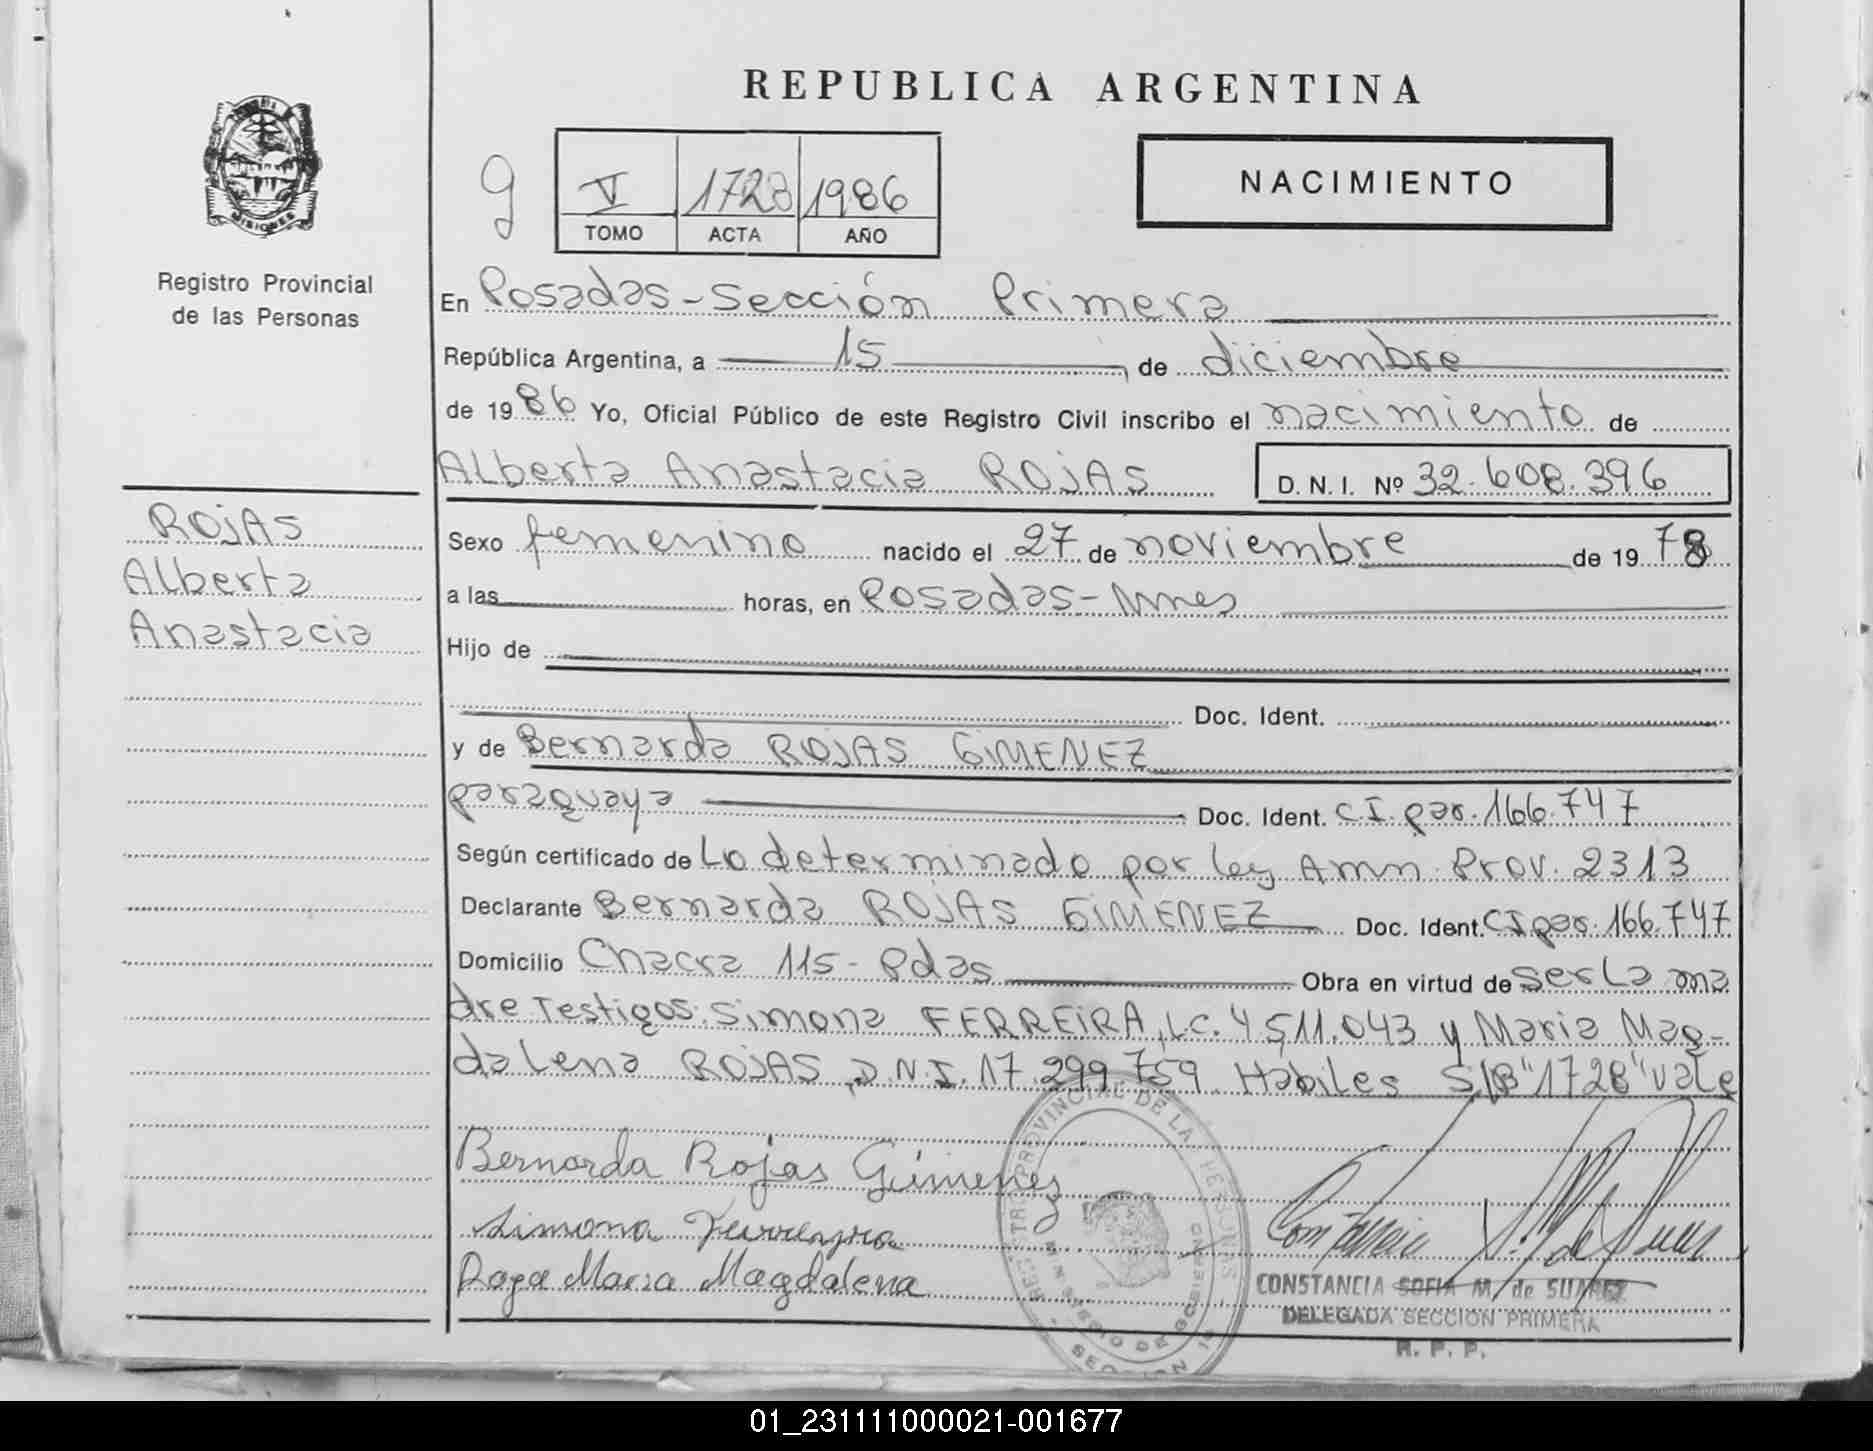 REPUBLICA ARGENTINA
MISIONES
Registro Provincial
de las Personas
9
V 1728 1986
TOMO ACTA AÑO
NACIMIENTO
En Posadas - Sección Primera
República Argentina, a 15, de diciembre
de 1986 Yo, Oficial Público de este Registro Civil inscribo el nacimiento de
Alberta Anastacia ROJAS D. N. I. Nº 32.608.396
ROJAS
Alberta
Anastacia
Sexo femenino nacido el 27 de noviembre de 1978
a las horas, en Posadas - Mnes
Hijo de
Doc. Ident.
y de Bernarda ROJAS GIMENEZ
paraguaya Doc. Ident. C.I. par. 166.747
Según certificado de Lo determinado por ley Amn. Prov. 2313
Declarante Bernarda ROJAS GIMENEZ Doc. Ident. CI par. 166.747
Domicilio Chacra 115 - Pdas Obra en virtud de ser la ma
dre Testigos: Simona FERREIRA, L.C. 4.511.043 y Maria Mag-
dalena ROJAS, D.N.I. 17.299.759. Habiles S/B "1728" vale
Bernarda Rojas Gimenez
Simona Ferreyra
Roja Maria Magdalena
PROVINCIAL DE LAS PERSONAS
MINISTERIO DE GOBIERNO
SECCION 1ª
CONSTANCIA SOFIA M. de SUAREZ
DELEGADA SECCION PRIMERA
R. P. P.
01_231111000021-001677